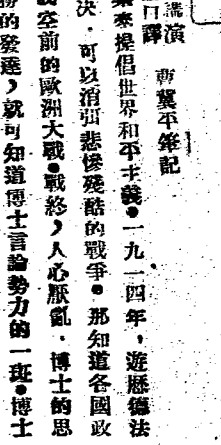 講演
口譯 曹冀平筆記
來提倡世界和平主義●一九一四年，遊歷德法
决．可以消弭悲慘殘酷的戰爭●那知道各國政
空前的歐洲大戰●戰終，人心厭亂．博士的思
的發達，就可知道博士言論勢力的一班●博士